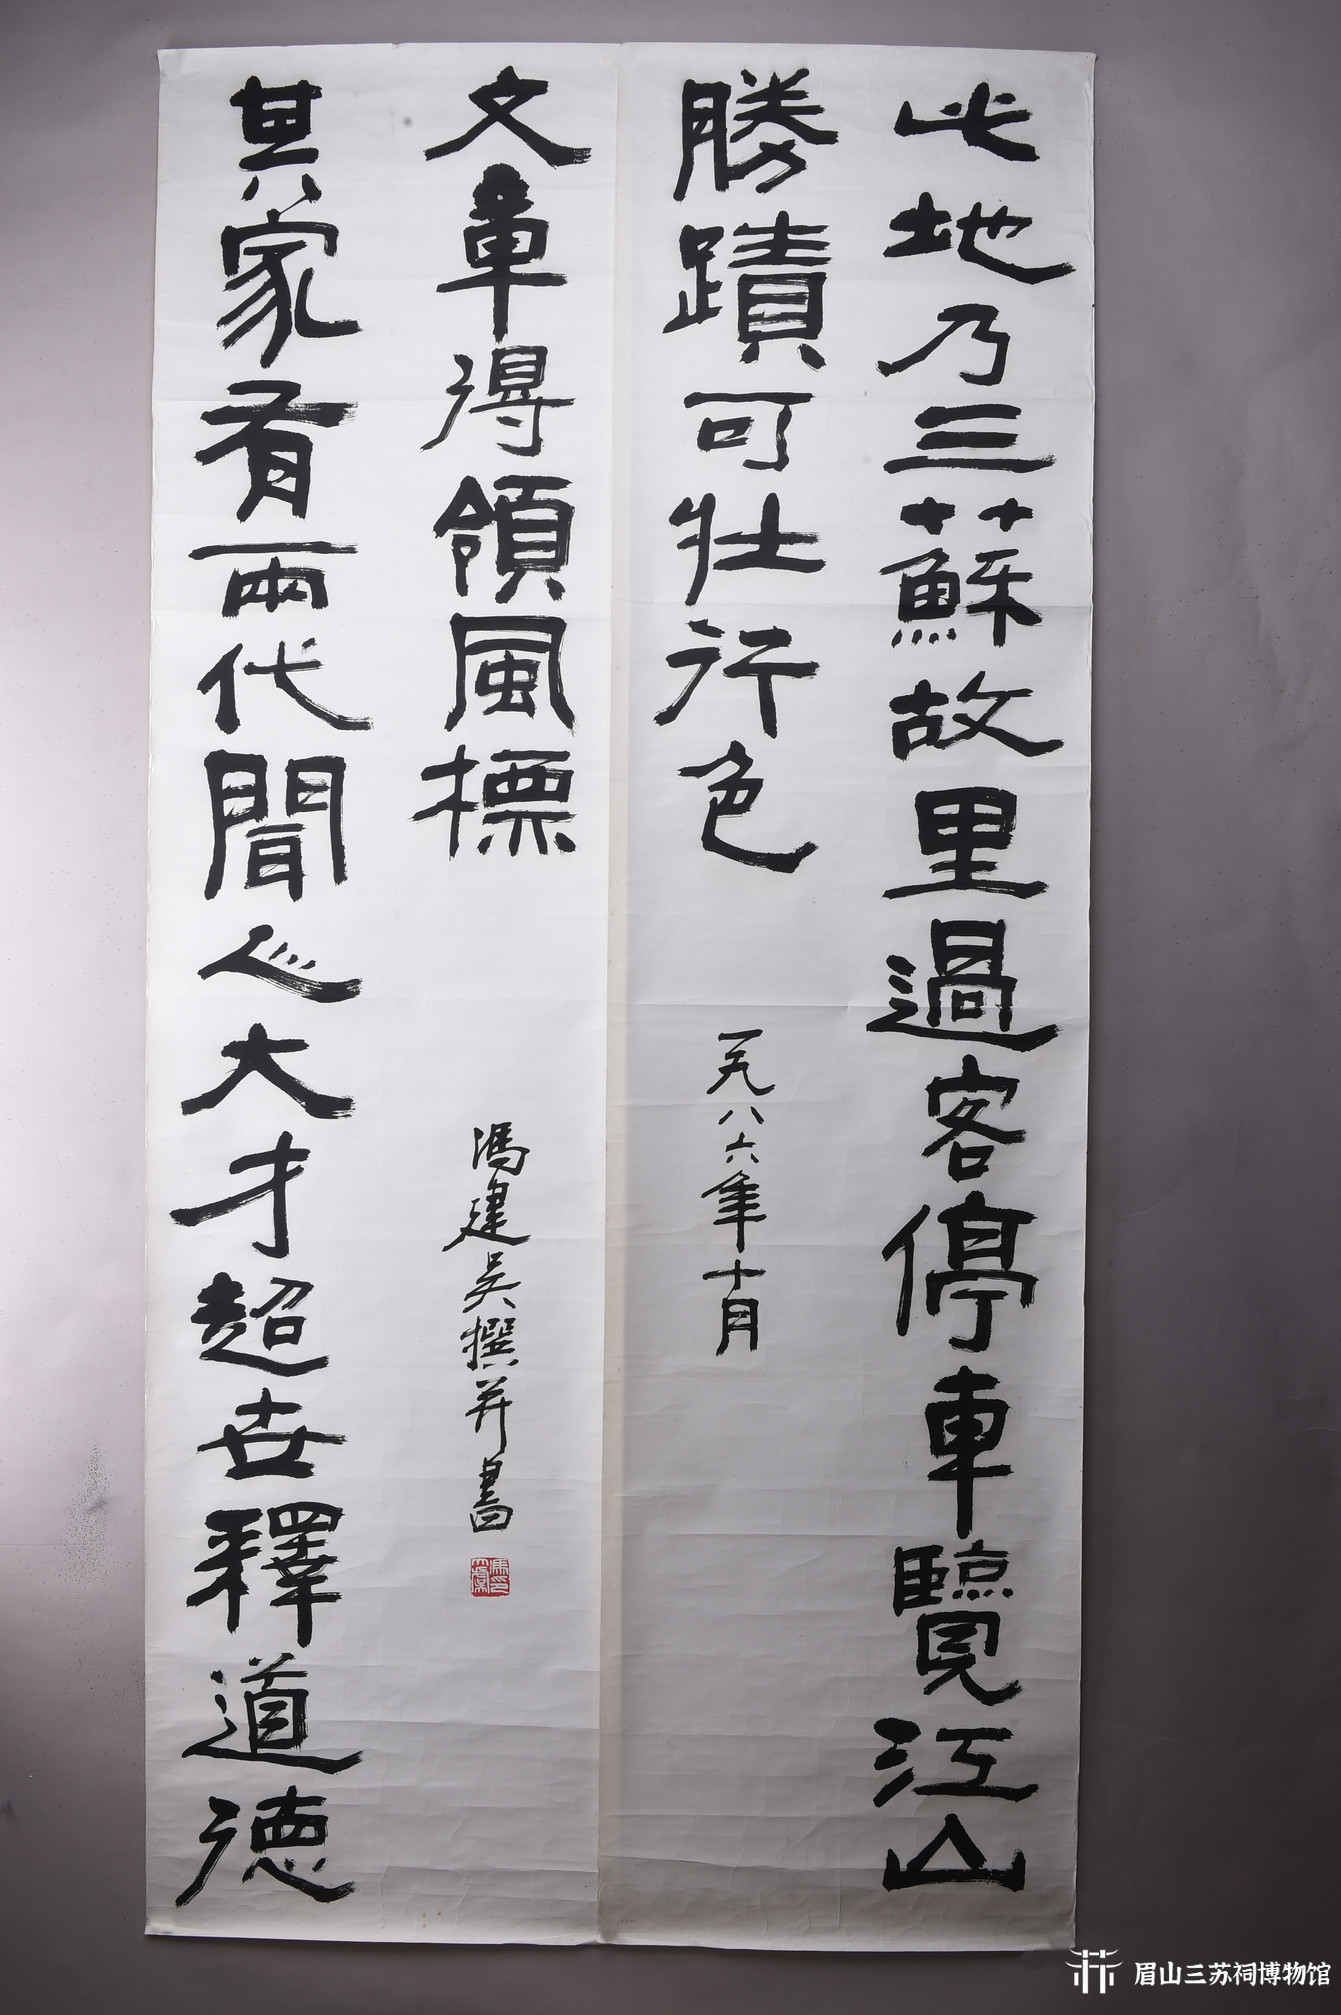 此地乃三蘇故里過客停車覽江山
勝蹟可壯行色
一九八六年十月
其家有兩代聞人大才超世釋道德
文章得領風標
馮建吳撰并書
眉山三苏祠博物馆